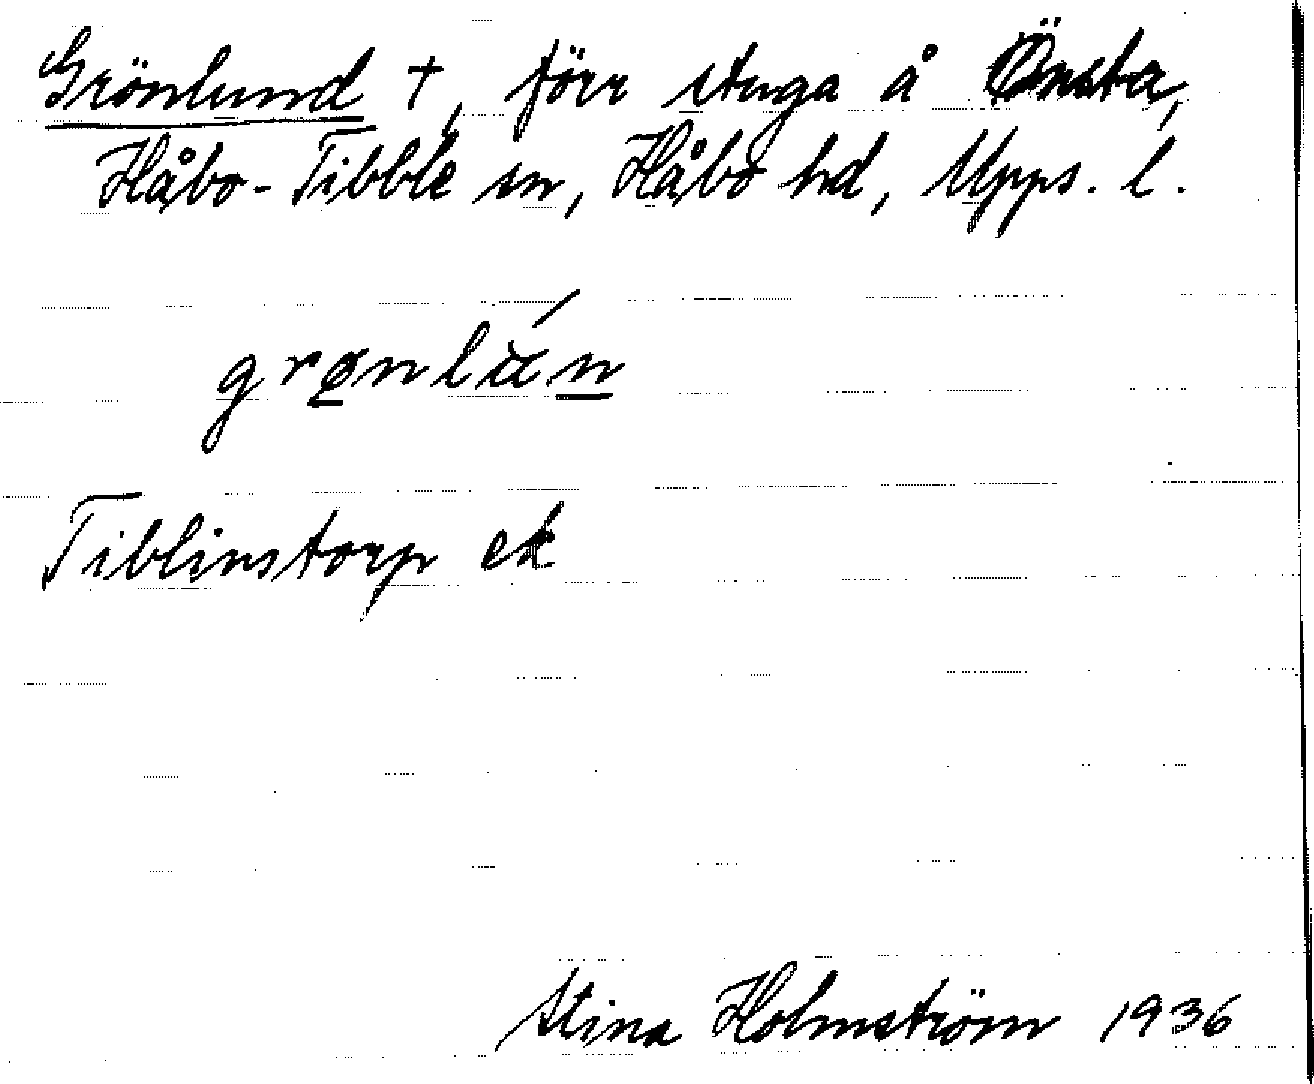 Grönlund †, förr stuga å Önsta,
Håbo-Tibble sn, Håbo hd, Upps. l.
Tiblinstorp ek
Stina Holmström 1936